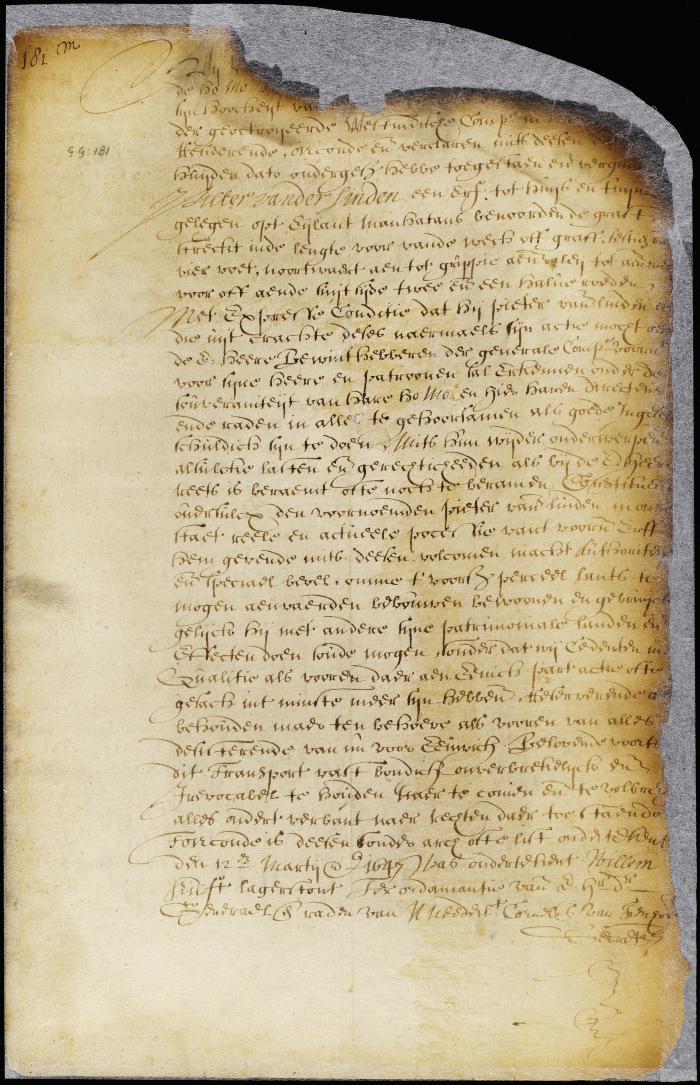 181 m
GG: 181
Wij
de Ho: Mo:
sijn Hoocheijt
der geoctroijeerde Westindische Comp
Residerende, oirconde en verclaren mits deesen
huijden dato ondergesz hebbe toegestaen en vergunt
Pieter vander linden een Erf, tot huijs en tuijn
gelegen opt Eijlant manhatans benoorden de graft
streckt inde lengte voor vande wech off graff,
vier voet, noortwaert aen tot aen valeij tot aen
voor off aende zuijt zijde twee en een halve roeden
Met Expresse Conditie dat hij pieter van linden
die uijt crachte deses naermaels sijn actie mogt
de E: Heere Bewinthebberen der generale Comp: voorn
voor sijne Heere en patroonen sal Erkennen onder de
souveraniteijt van hare Ho Mo: en hier haren Directeur
ende raden in alles te gehoorsamen als goede Inge
schuldich sijn te doen, Mits hun wijders onderwerpende
alsulcke lasten en gerechticheeden als bij de E: Heeren
reets is beraemt ofte noch te beramen Constitueer
oversulcx den voornoemden pieter van linden in onse
staet reele en actueele possessie vant voorn Erff
hem gevende mits deesen volcomen macht Authoriteijt
en speciael bevel, omme t voorsz perceel lants te
mogen aenvaerden bebouwen bewoonen en gebruijcken
gelijck hij met andere sijne patrimoniale landen en
Effecten doen soude mogen, sonder dat wij Cedenten in
Qualitie als vooren daer aen Eenich part actie ofte
gesach int minste meer sijn hebben, Reserverende
behouden maer ten behoeve als vooren van alles
desisterende van nu voor Eeuwich, Belovende voorts
dit Transport vast bondich onverbrekelijck en
Irevocabel te houden naer te comen en te volbrengen
alles ondert verbant naer rechten daer toe staende
T'oirconde is deesen sonder arch ofte list onderteekent
den 12en Martij Ao 1647 Was onderteekent Willem
Kieft lagerstont Ter ordonnantie van d Hr Dr
Generael & raden van N Nederlt Cornelis van Tienhoven
Secrets